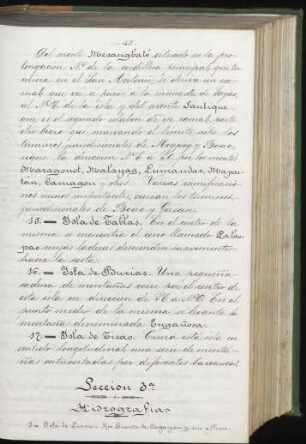 47.
Del monte Mesangbató situado en la pro-
longacion N.O. de la cordillera principal que ter-
mina en el San Antonio, se deriva un ra-
mal que va a parar a la ensenada de Gasan
al N.E. de la isla y del monte Santique
que es el segundo eslabon de ese ramal parte
otro brazo que marcando el limite entre los
terminos jurisdiccionales de Mogpog y Boac
sigue la direccion N.E. a S.O. por los montes
Maragonot, Malayag, Lumandac, Mapai-
tan, Camagon y otros. Varias ramificacio-
nes menos importantes, cruzan los terminos
jurisdiccionales de Boac y Gasan.
15. — Isla de Tablas. En el centro de la
misma se encuentra el cerro llamado Palas-
pao cuyas laderas descienden suavemente
hacia la costa.
16. — Isla de Burias. Una pequeña
cadena de montañas corre por el centro de
esta isla en direccion de S.E. a N.O. En el
punto medio de la misma se levanta la
montaña denominada Engañosa.
17. — Isla de Ticao. Cruza esta isla en
sentido longitudinal una serie de monta-
ñas entrecortadas por diferentes barrancos
Seccion 3ª
Hidrografia
1 — Isla de Luzon — Rio Grande de Cagayan y sus afluen-